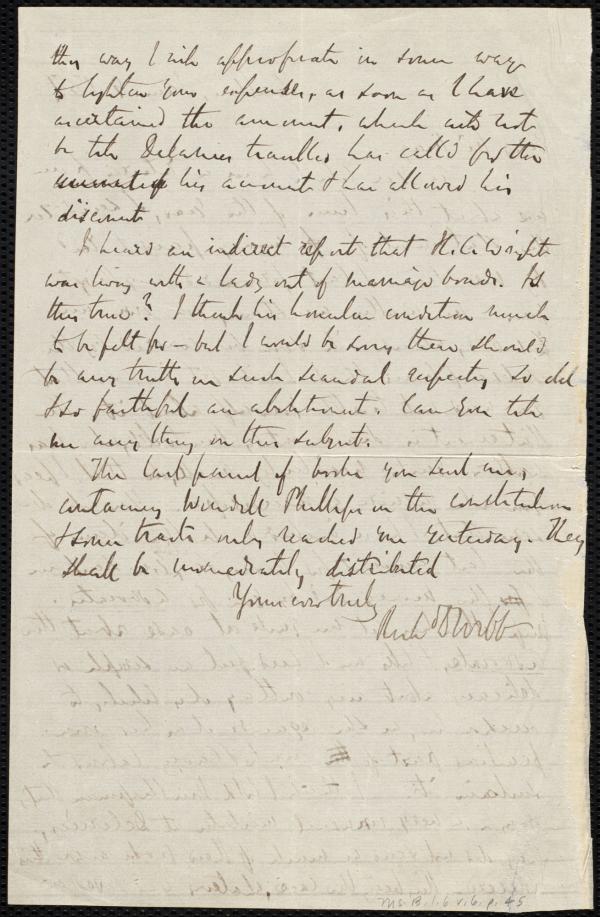 this way I will appropriate in some way
to lighten your expenses, as soon as I have
ascertained the amount, which will not
be till Delaney's traveller has call'd for the
amount of his account & has allowed his
discount
I heard an indirect report that H. C. Wright
was living with a lady out of marriage bonds. Is
this true? I think his condition much
to be felt for – but I would be sorry there should
be any truth in such scandal respecting so old
& so faithful an abolitionist. Can you tell
me any thing on this subject.
The last parcel of books you sent me,
containing Wendell Phillips on the constitution
& some tracts only reached me yesterday. They
shall be immediately distributed
Yours ever truly
Richd D Webb
Ms. B. 1. 6 v. 6. p. 45